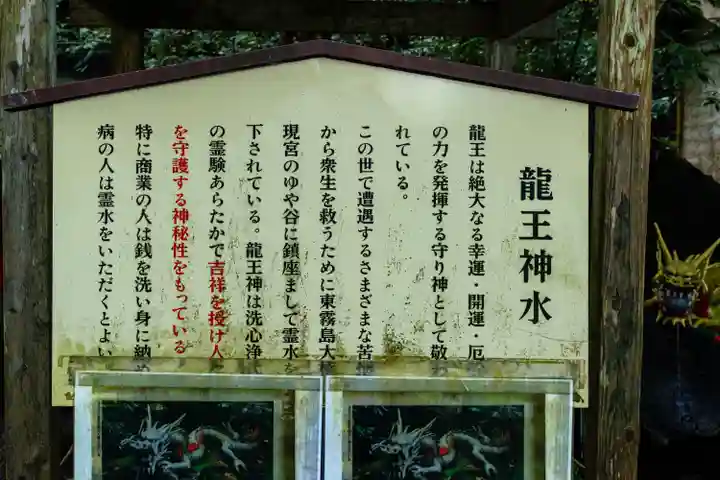 龍王神水
龍王は絶大なる幸運・開運・厄
の力を発揮する守り神として敬わ
れている。
この世で遭遇するさまざまな苦
から衆生を救うために東霧島大
現宮のゆや谷に鎮座まして霊水を
下されている。龍王神は洗心浄
の霊験あらたかで吉祥を授け人
を守護する神秘性をもっている
特に商業の人は銭を洗い身に納め
病の人は霊水をいただくとよい